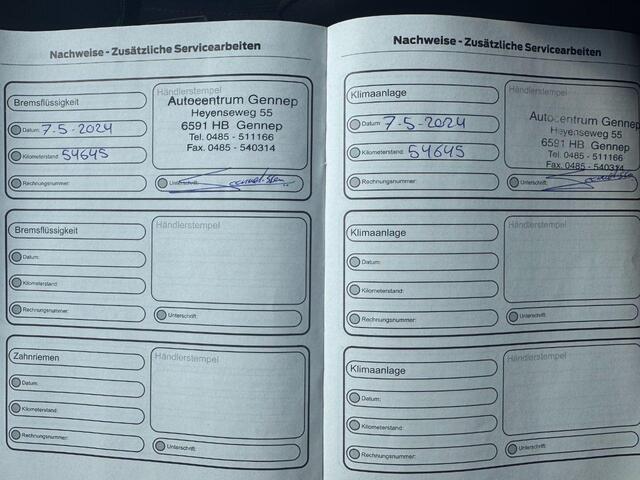 Nachweise - Zusätzliche Servicearbeiten
Bremsflüssigkeit
Datum: 7-5-2024
Kilometerstand: 54645
Rechnungsnummer:
Händlerstempel
Autocentrum Gennep
Heyenseweg 55
6591 HB Gennep
Tel. 0485 - 511166
Fax. 0485 - 540314
Unterschrift:
Bremsflüssigkeit
Datum:
Kilometerstand:
Rechnungsnummer:
Händlerstempel
Unterschrift:
Zahnriemen
Datum:
Kilometerstand:
Rechnungsnummer:
Händlerstempel
Unterschrift:
Nachweise - Zusätzliche Servicearbeiten
Klimaanlage
Datum: 7-5-2024
Kilometerstand: 54645
Rechnungsnummer:
Händlerstempel
Autocentrum Gennep
Heyenseweg 55
6591 HB Gennep
Tel. 0485 - 511166
Fax. 0485 - 540314
Unterschrift:
Klimaanlage
Datum:
Kilometerstand:
Rechnungsnummer:
Händlerstempel
Unterschrift:
Klimaanlage
Datum:
Kilometerstand:
Rechnungsnummer:
Händlerstempel
Unterschrift: